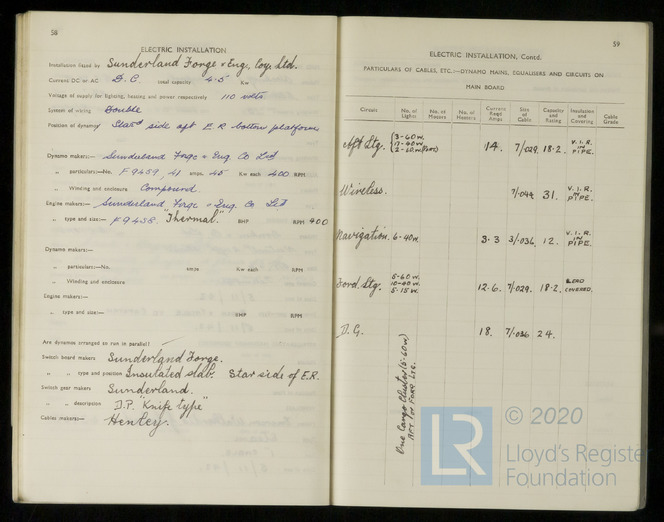 58
ELECTRIC INSTALLATION
Installation fitted by Sunderland Forge & Eng. Coy. Ltd.
Current DC or AC D.C total capacity 4.5 Kw
Voltage of supply for lighting, heating and power respectively 110 volts
System of wiring Double
Position of dynamos Starb'd side aft E.R bottom platform
Dynamo makers:— Sunderland Forge & Eng. Co Ltd
„ particulars:—No. F9459, 41 amps. 4.5 Kw each 400 RPM
„ Winding and enclosure Compound.
Engine makers:— Sunderland Forge & Eng. Co Ltd
„ type and size:— F9458 "Thermal." BHP RPM 400
Dynamo makers:—
„ particulars:—No. amps Kw each RPM
„ Winding and enclosure
Engine makers:—
„ type and size:— BHP RPM
Are dynamos arranged to run in parallel?
Switch board makers Sunderland Forge.
„ „ type and position Insulated slab. Star side of E.R.
Switch gear makers Sunderland.
„ „ description D.P. "Knife type"
Cables makers:— Henley.
59
ELECTRIC INSTALLATION, Contd.
PARTICULARS OF CABLES, ETC.:—DYNAMO MAINS, EQUALISERS AND CIRCUITS ON
MAIN BOARD
Circuits No. of Lights No. of Motors No. of Heaters Current Reqd Amps Size of Cable Capacity and Rating Insulation and Covering Cable Grade
Aft Ltg. 3-60w. 17-40w. 14. 7/029. 18.2. V.I.R. IN PIPE.
Wireless. 7/044 31. V.I.R. IN PIPE.
Navigation. 6-40w. 3.3 3/036. 12. V.I.R. IN PIPE.
Ford. Ltg. 5-60w. 10-40w. 5-15w. 12.6. 7/029. 18.2. LEAD COVERED.
D.G. 18. 7/036 24.
One Cargo Cluster (6-60w)
AFT. IN FORD LTG.
LR © 2020
Lloyd's Register
Foundation